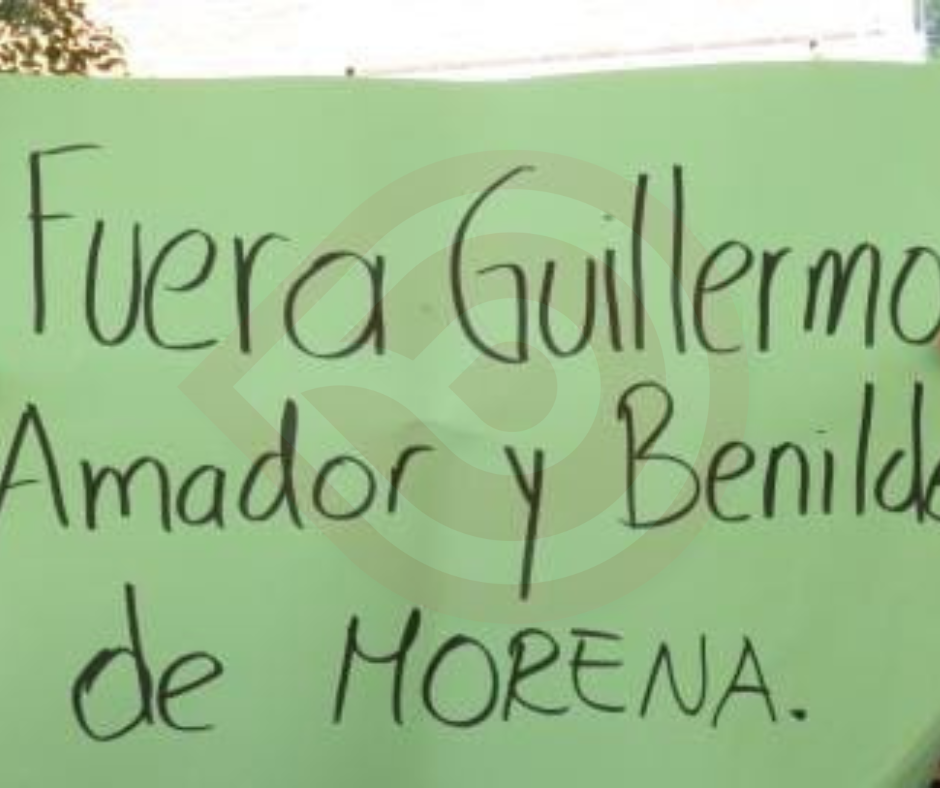 Fuera Guillermo
Amador y Benilde
de MORENA.